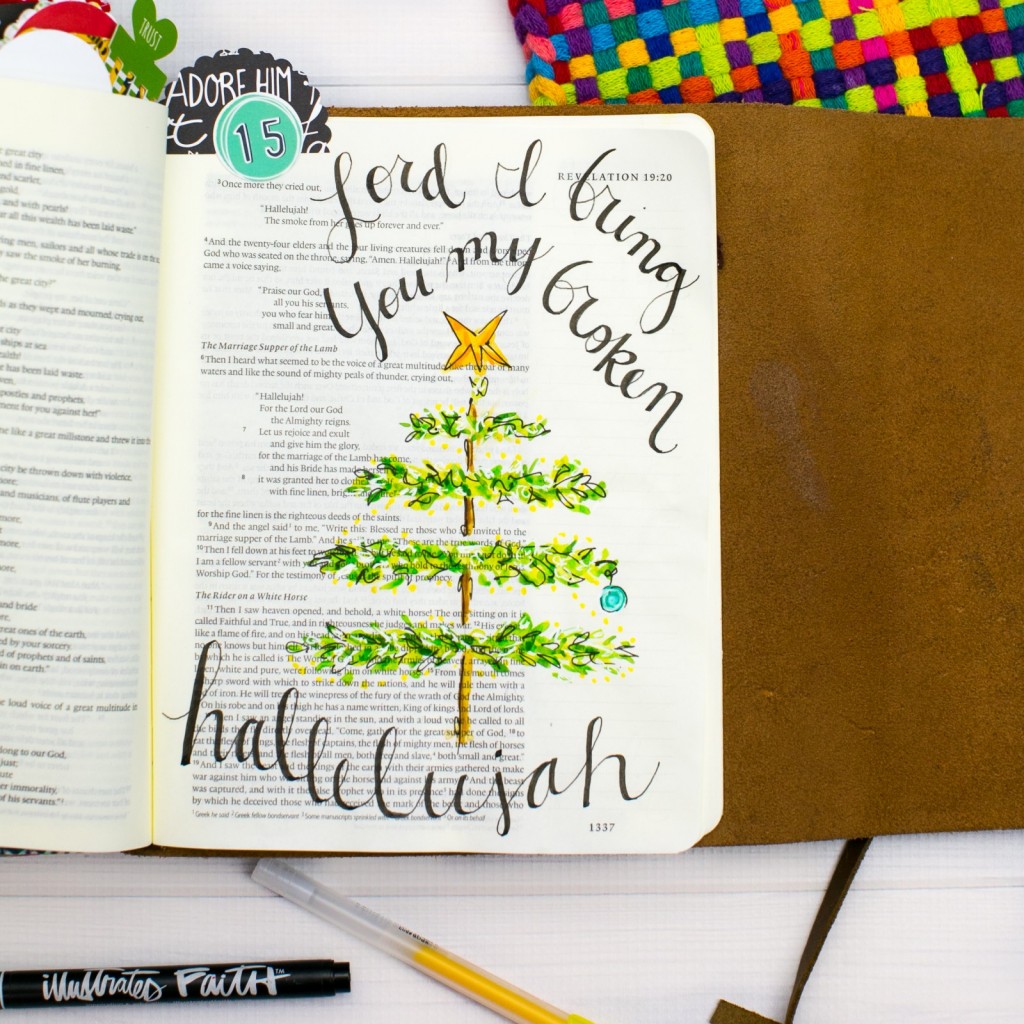 TRUST
ADORE HIM
15
REVELATION 19:20
Lord I bring
You my broken
hallelujah
e great city
ed in fine linen,
nd scarlet,
gold,
and with pearls!
r all this wealth has been laid waste
ing men, sailors and all whose trade is on the
y saw the smoke of her burning,
he great city?"
ds as they wept and mourned, crying out,
t city
ships at sea
ealth!
e has been laid waste.
ven,
postles and prophets,
ment for you against her!"
ne like a great millstone and threw it into th
city be thrown down with violence,
more;
and musicians, of flute players and
more,
t
more,
ore,
and bride
re,
reat ones of the earth,
ed by your sorcery.
d of prophets and of saints,
in on earth."
he loud voice of a great multitude in
long to our God,
just;
ute
er immorality,
of his servants."
3 Once more they cried out,
"Hallelujah!
The smoke from her goes up forever and ever."
4 And the twenty-four elders and the four living creatures fell down and worshiped
God who was seated on the throne, saying, "Amen. Hallelujah!" 5 And from the throne
came a voice saying,
"Praise our God,
all you his servants,
you who fear him,
small and great."
The Marriage Supper of the Lamb
6 Then I heard what seemed to be the voice of a great multitude, like the roar of many
waters and like the sound of mighty peals of thunder, crying out,
"Hallelujah!
For the Lord our God
the Almighty reigns.
7 Let us rejoice and exult
and give him the glory,
for the marriage of the Lamb has come,
and his Bride has made herself
8 it was granted her to clothe
with fine linen, bright
for the fine linen is the righteous deeds of the saints.
9 And the angel said to me, "Write this: Blessed are those who are invited to the
marriage supper of the Lamb." And he said to me, "These are the true words of God."
10 Then I fell down at his feet to
I am a fellow servant with you and
Worship God." For the testimony of Jesus is the spirit of prophecy.
The Rider on a White Horse
11 Then I saw heaven opened, and behold, a white horse! The one sitting on it is
called Faithful and True, and in righteousness he judges and makes war. 12 His
like a flame of fire, and on his head
knows but himself
by which he is called is The Word
white and pure, were following him on white horses. 15 From his mouth comes
sharp sword with which to strike down the nations, and he will rule them with a
rod of iron. He will tread the winepress of the fury of the wrath of God the Almighty.
On his robe and on his thigh he has a name written, King of kings and Lord of lords.
Then I saw an angel standing in the sun, and with a loud voice he called to all
the birds that fly directly overhead, "Come, gather for the great supper of God, 18 to
eat the flesh of kings, the flesh of captains, the flesh of mighty men, the flesh of horses
and their riders, and the flesh of all men, both free and slave, both small and great."
19 And I saw the beast and the kings of the earth with their armies gathered to make
war against him who was sitting on the horse and against his army. 20 And the beast
was captured, and with it the false prophet who in its presence had done the signs
by which he deceived those who had received the mark of the beast and those who
1 Greek he said 2 Greek fellow bondservant 3 Some manuscripts sprinkled with 4 Greek bondservant 5 Or on its behalf
1337
illustrated FAITH™